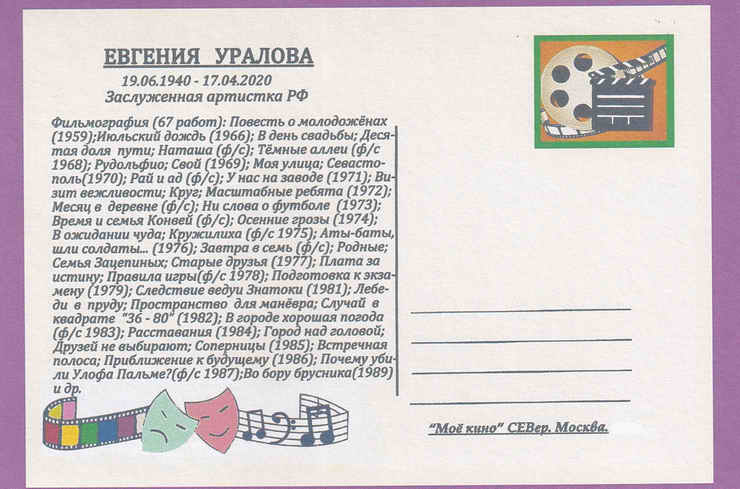 ЕВГЕНИЯ УРАЛОВА
19.06.1940 - 17.04.2020
Заслуженная артистка РФ
Фильмография (67 работ): Повесть о молодожёнах
(1959);Июльский дождь (1966); В день свадьбы; Деся-
тая доля пути; Наташа (ф/с); Тёмные аллеи (ф/с
1968); Рудольфио; Свой (1969); Моя улица; Севасто-
поль(1970); Рай и ад (ф/с); У нас на заводе (1971); Ви-
зит вежливости; Круг; Масштабные ребята (1972);
Месяц в деревне (ф/с); Ни слова о футболе (1973);
Время и семья Конвей (ф/с); Осенние грозы (1974);
В ожидании чуда; Кружилиха (ф/с 1975); Аты-баты,
шли солдаты... (1976); Завтра в семь (ф/с); Родные;
Семья Зацепиных; Старые друзья (1977); Плата за
истину; Правила игры(ф/с 1978); Подготовка к экза-
мену (1979); Следствие ведуи Знатоки (1981); Лебе-
ди в пруду; Пространство для манёвра; Случай в
квадрате "36 - 80" (1982); В городе хорошая погода
(ф/с 1983); Расставания (1984); Город над головой;
Друзей не выбирают; Соперницы (1985); Встречная
полоса; Приближение к будущему (1986); Почему уби-
ли Улофа Пальме?(ф/с 1987);Во бору брусника(1989)
и др.
"Моё кино" СЕВер. Москва.